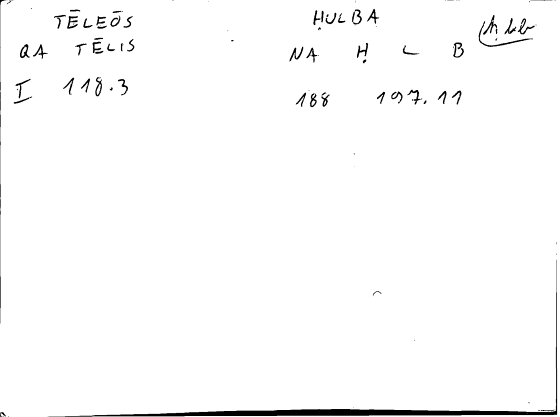 TĒLEŌS ḤULBA ḥlb
QA TĒLIS NA Ḥ L B
I 118.3 188 197.11